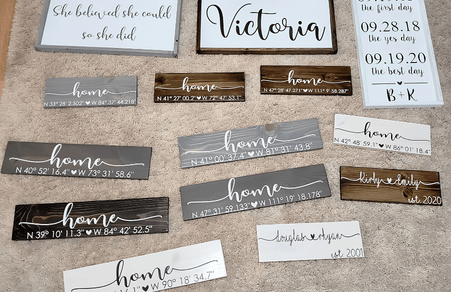 She believed she could
so she did
Victoria
the first day
09.28.18
the yes day
09.19.20
the best day
B + K
home
home
N 41° 27' 00.2" ♥ W 72° 47' 53.1"
home
home
N 42° 48' 59.1" ♥ W 86° 01' 18.4"
home
N 41° 00' 37.4" ♥ W 81° 31' 43.8"
home
N 40° 52' 16.4" ♥ W 73° 31' 58.6"
Kirby ♥ Emily
est. 2020
home
N 47° 31' 59.133" ♥ W 111° 19' 18.178"
home
N 39° 10' 11.3" ♥ W 84° 42' 52.5"
douglas ♥
est. 2001
home
W 90° 18' 34.7"